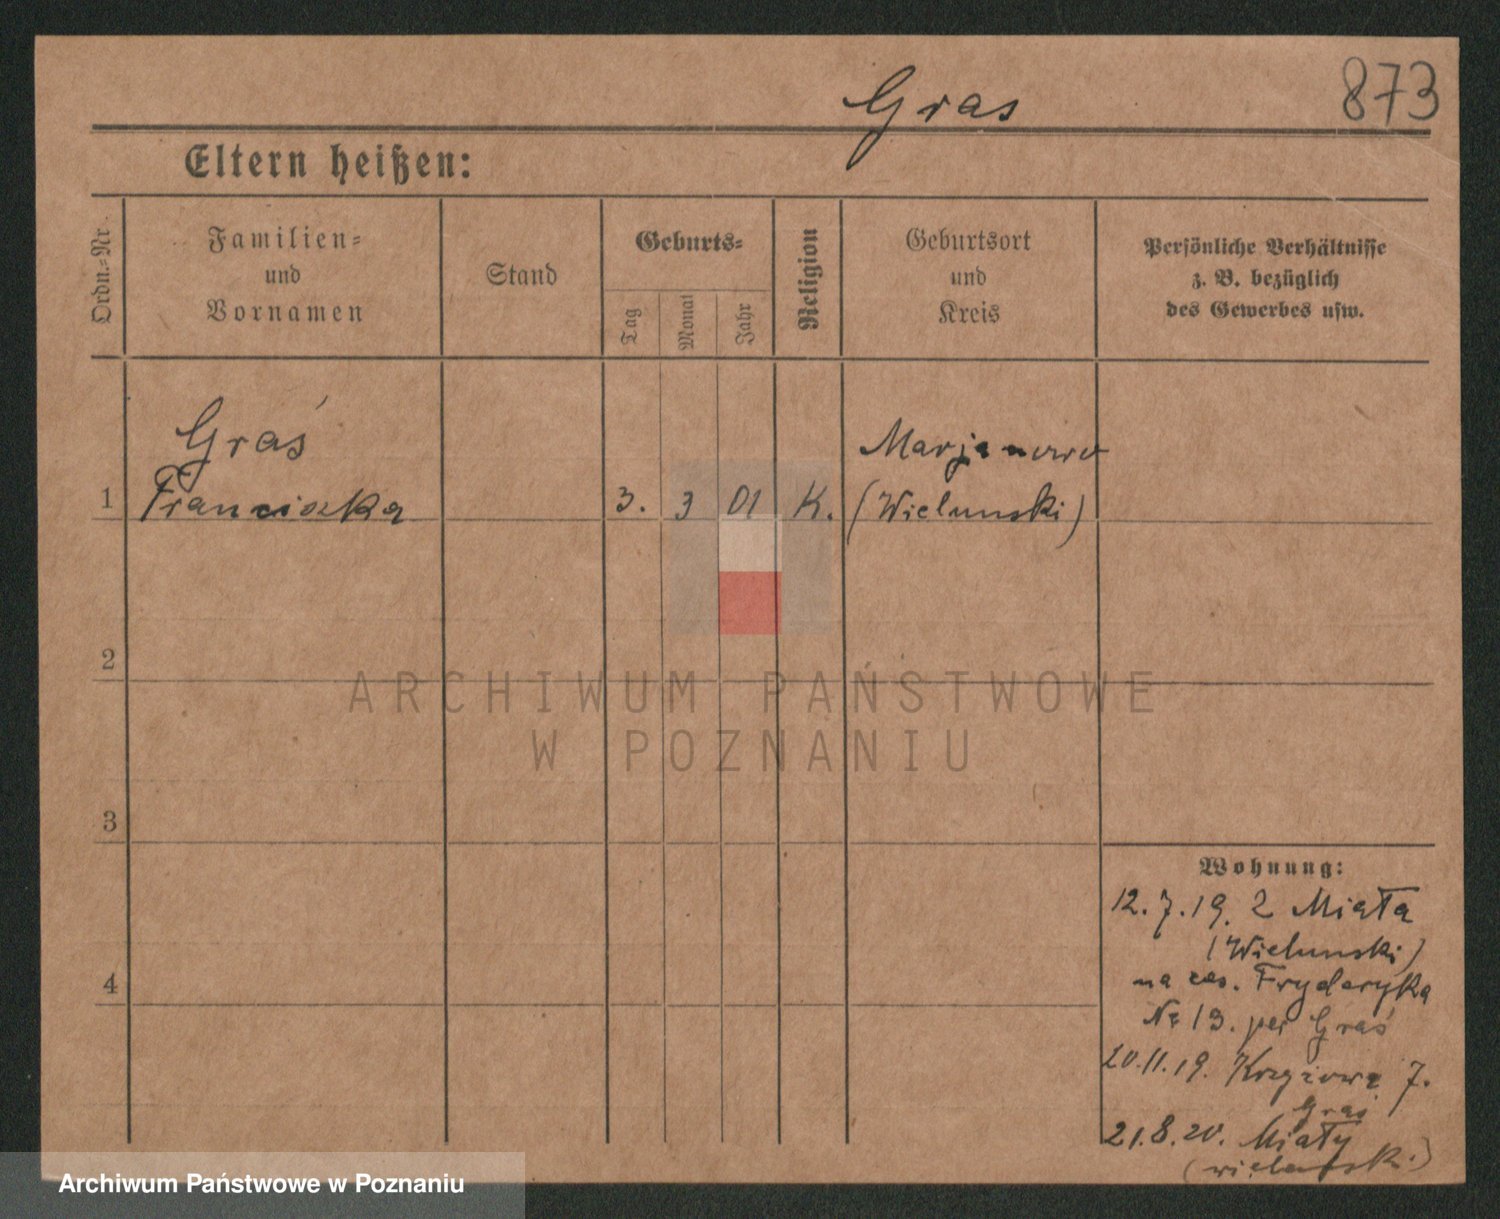 Gras
873
Eltern heißen:
Ordn.=Nr.
Familien=
und
Vornamen
Stand
Geburts=
Tag
Monat
Jahr
Religion
Geburtsort
und
Kreis
Persönliche Verhältnisse
z. B. bezüglich
des Gewerbes usw.
Graś
Marjanowo
1
Franciszka
3.
3
01
K.
(Wielunski)
2
ARCHIWUM PAŃSTWOWE
W POZNANIU
3
Wohnung:
12.7.19. z Miała
(Wielunski)
4
na Fryderyka
Nr 13. per Graś
20.11.19. Krzyżowa 7.
Graś
21.8.20. Miały
(wielunsk.)
Archiwum Państwowe w Poznaniu